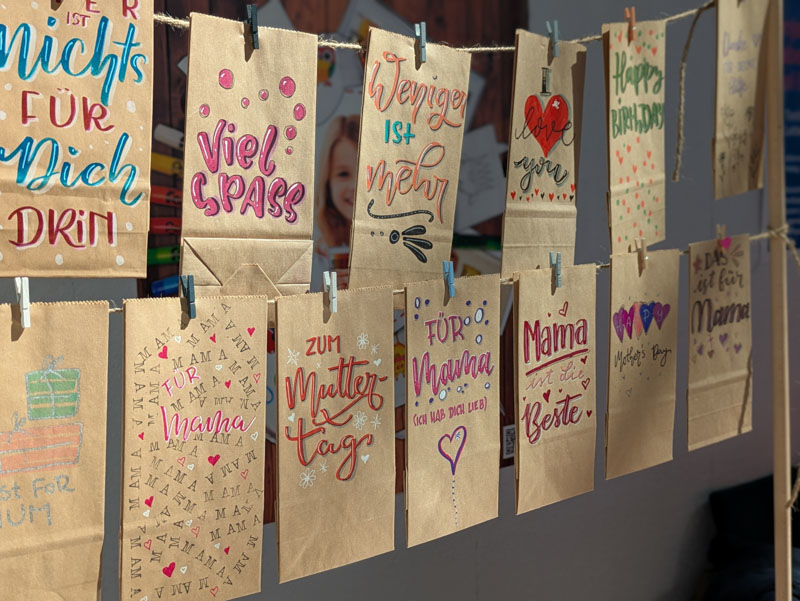 ER
IST
Nichts
FÜR
Dich
DRIN
Viel
SPASS
Weniger
IST
mehr
I
love
you
Happy
BIRTHDAY
FOR
MUM
MAMA
FÜR
Mama
ZUM
Mutter-
tag
FÜR
Mama
(ICH HAB DICH LIEB)
Mama
ist die
Beste
Mother's Day
DAS
ist für
Mama